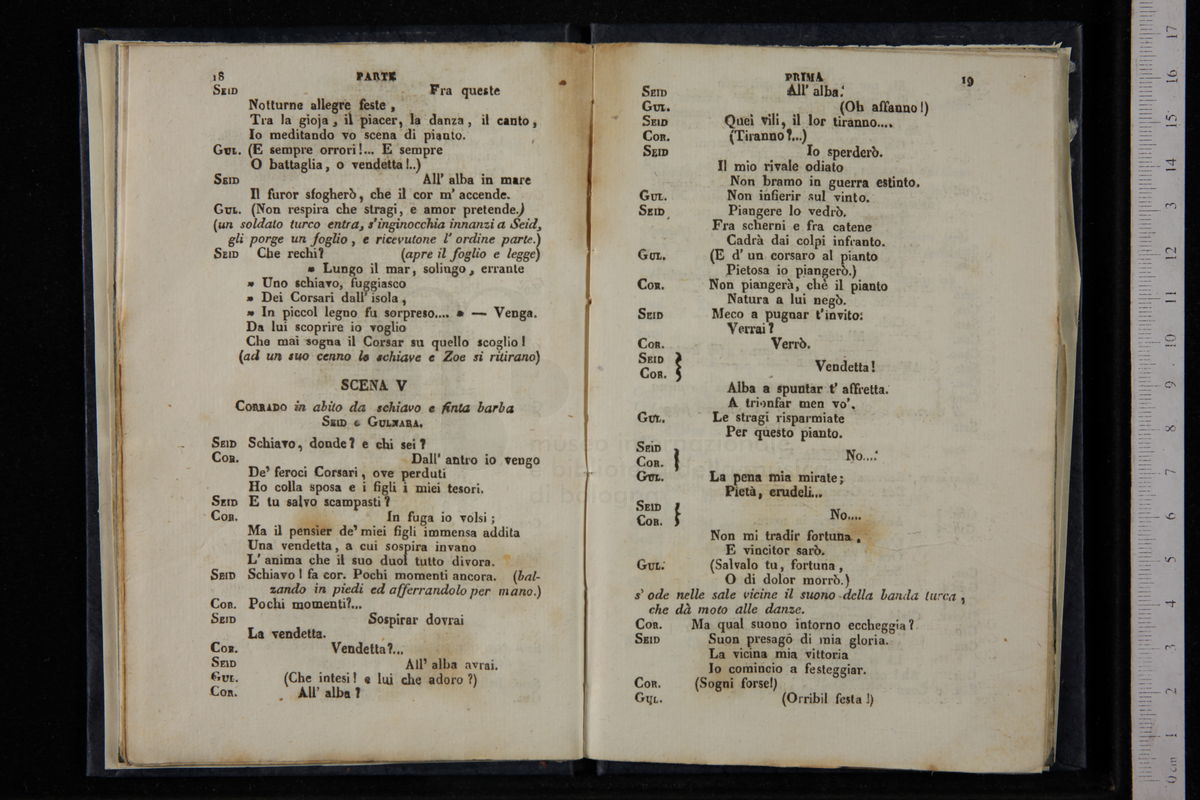 18 PARTE
SEID Fra queste
Notturne allegre feste,
Tra la gioja, il piacer, la danza, il canto,
Io meditando vo scena di pianto.
GUL. (E sempre orrori!... E sempre
O battaglia, o vendetta!..)
SEID All' alba in mare
Il furor sfogherò, che il cor m' accende.
GUL. (Non respira che stragi, e amor pretende.)
(un soldato turco entra, s'inginocchia innanzi a Seid,
gli porge un foglio, e ricevutone l' ordine parte.)
SEID Che rechi? (apre il foglio e legge)
» Lungo il mar, solingo, errante
» Uno schiavo, fuggiasco
» Dei Corsari dall' isola,
» In piccol legno fu sorpreso.... » — Venga.
Da lui scoprire io voglio
Che mai sogna il Corsar su quello scoglio!
(ad un suo cenno le schiave e Zoe si ritirano)
SCENA V
CORRADO in abito da schiavo e finta barba
SEID e GULNARA.
SEID Schiavo, donde? e chi sei?
COR. Dall' antro io vengo
De' feroci Corsari, ove perduti
Ho colla sposa e i figli i miei tesori.
SEID E tu salvo scampasti?
COR. In fuga io volsi;
Ma il pensier de' miei figli immensa addita
Una vendetta, a cui sospira invano
L' anima che il suo duol tutto divora.
SEID Schiavo! fa cor. Pochi momenti ancora. (bal-
zando in piedi ed afferrandolo per mano.)
COR. Pochi momenti?...
SEID Sospirar dovrai
La vendetta.
COR. Vendetta?...
SEID All' alba avrai.
GUL. (Che intesi! e lui che adoro?)
COR. All' alba?
PRIMA 19
SEID All' alba.
GUL. (Oh affanno!)
SEID Quei vili, il lor tiranno....
COR. (Tiranno?...)
SEID Io sperderò.
Il mio rivale odiato
Non bramo in guerra estinto.
GUL. Non infierir sul vinto.
SEID Piangere lo vedrò.
Fra scherni e fra catene
Cadrà dai colpi infranto.
GUL. (E d' un corsaro al pianto
Pietosa io piangerò.)
COR. Non piangerà, chè il pianto
Natura a lui negò.
SEID Meco a pugnar t'invito:
Verrai?
COR. Verrò.
SEID }
COR. } Vendetta!
Alba a spuntar t' affretta.
A trionfar men vo'.
GUL. Le stragi risparmiate
Per questo pianto.
SEID }
COR. } No....
GUL. La pena mia mirate;
Pietà, crudeli...
SEID }
COR. } No....
Non mi tradir fortuna,
E vincitor sarò.
GUL. (Salvalo tu, fortuna,
O di dolor morrò.)
s' ode nelle sale vicine il suono della banda turca,
che dà moto alle danze.
COR. Ma qual suono intorno eccheggia?
SEID Suon presago di mia gloria.
La vicina mia vittoria
Io comincio a festeggiar.
COR. (Sogni forse!)
GUL. (Orribil festa!)
0 cm 1 2 3 4 5 6 7 8 9 10 11 12 13 14 15 16 17